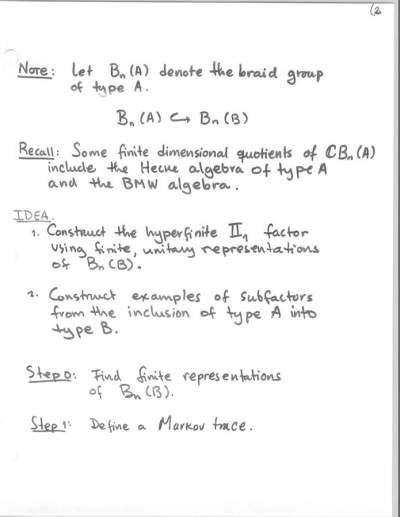 Note: Let Bn(A) denote the braid group
of type A.
Bn(A) ↪ Bn(B)
Recall: Some finite dimensional quotients of ℂBn(A)
include the Hecke algebra of type A
and the BMW algebra.
IDEA.
1. Construct the hyperfinite II₁ factor
using finite, unitary representations
of Bn(B).
2. Construct examples of subfactors
from the inclusion of type A into
type B.
Step 0: Find finite representations
of Bn(B).
Step 1: Define a Markov trace.